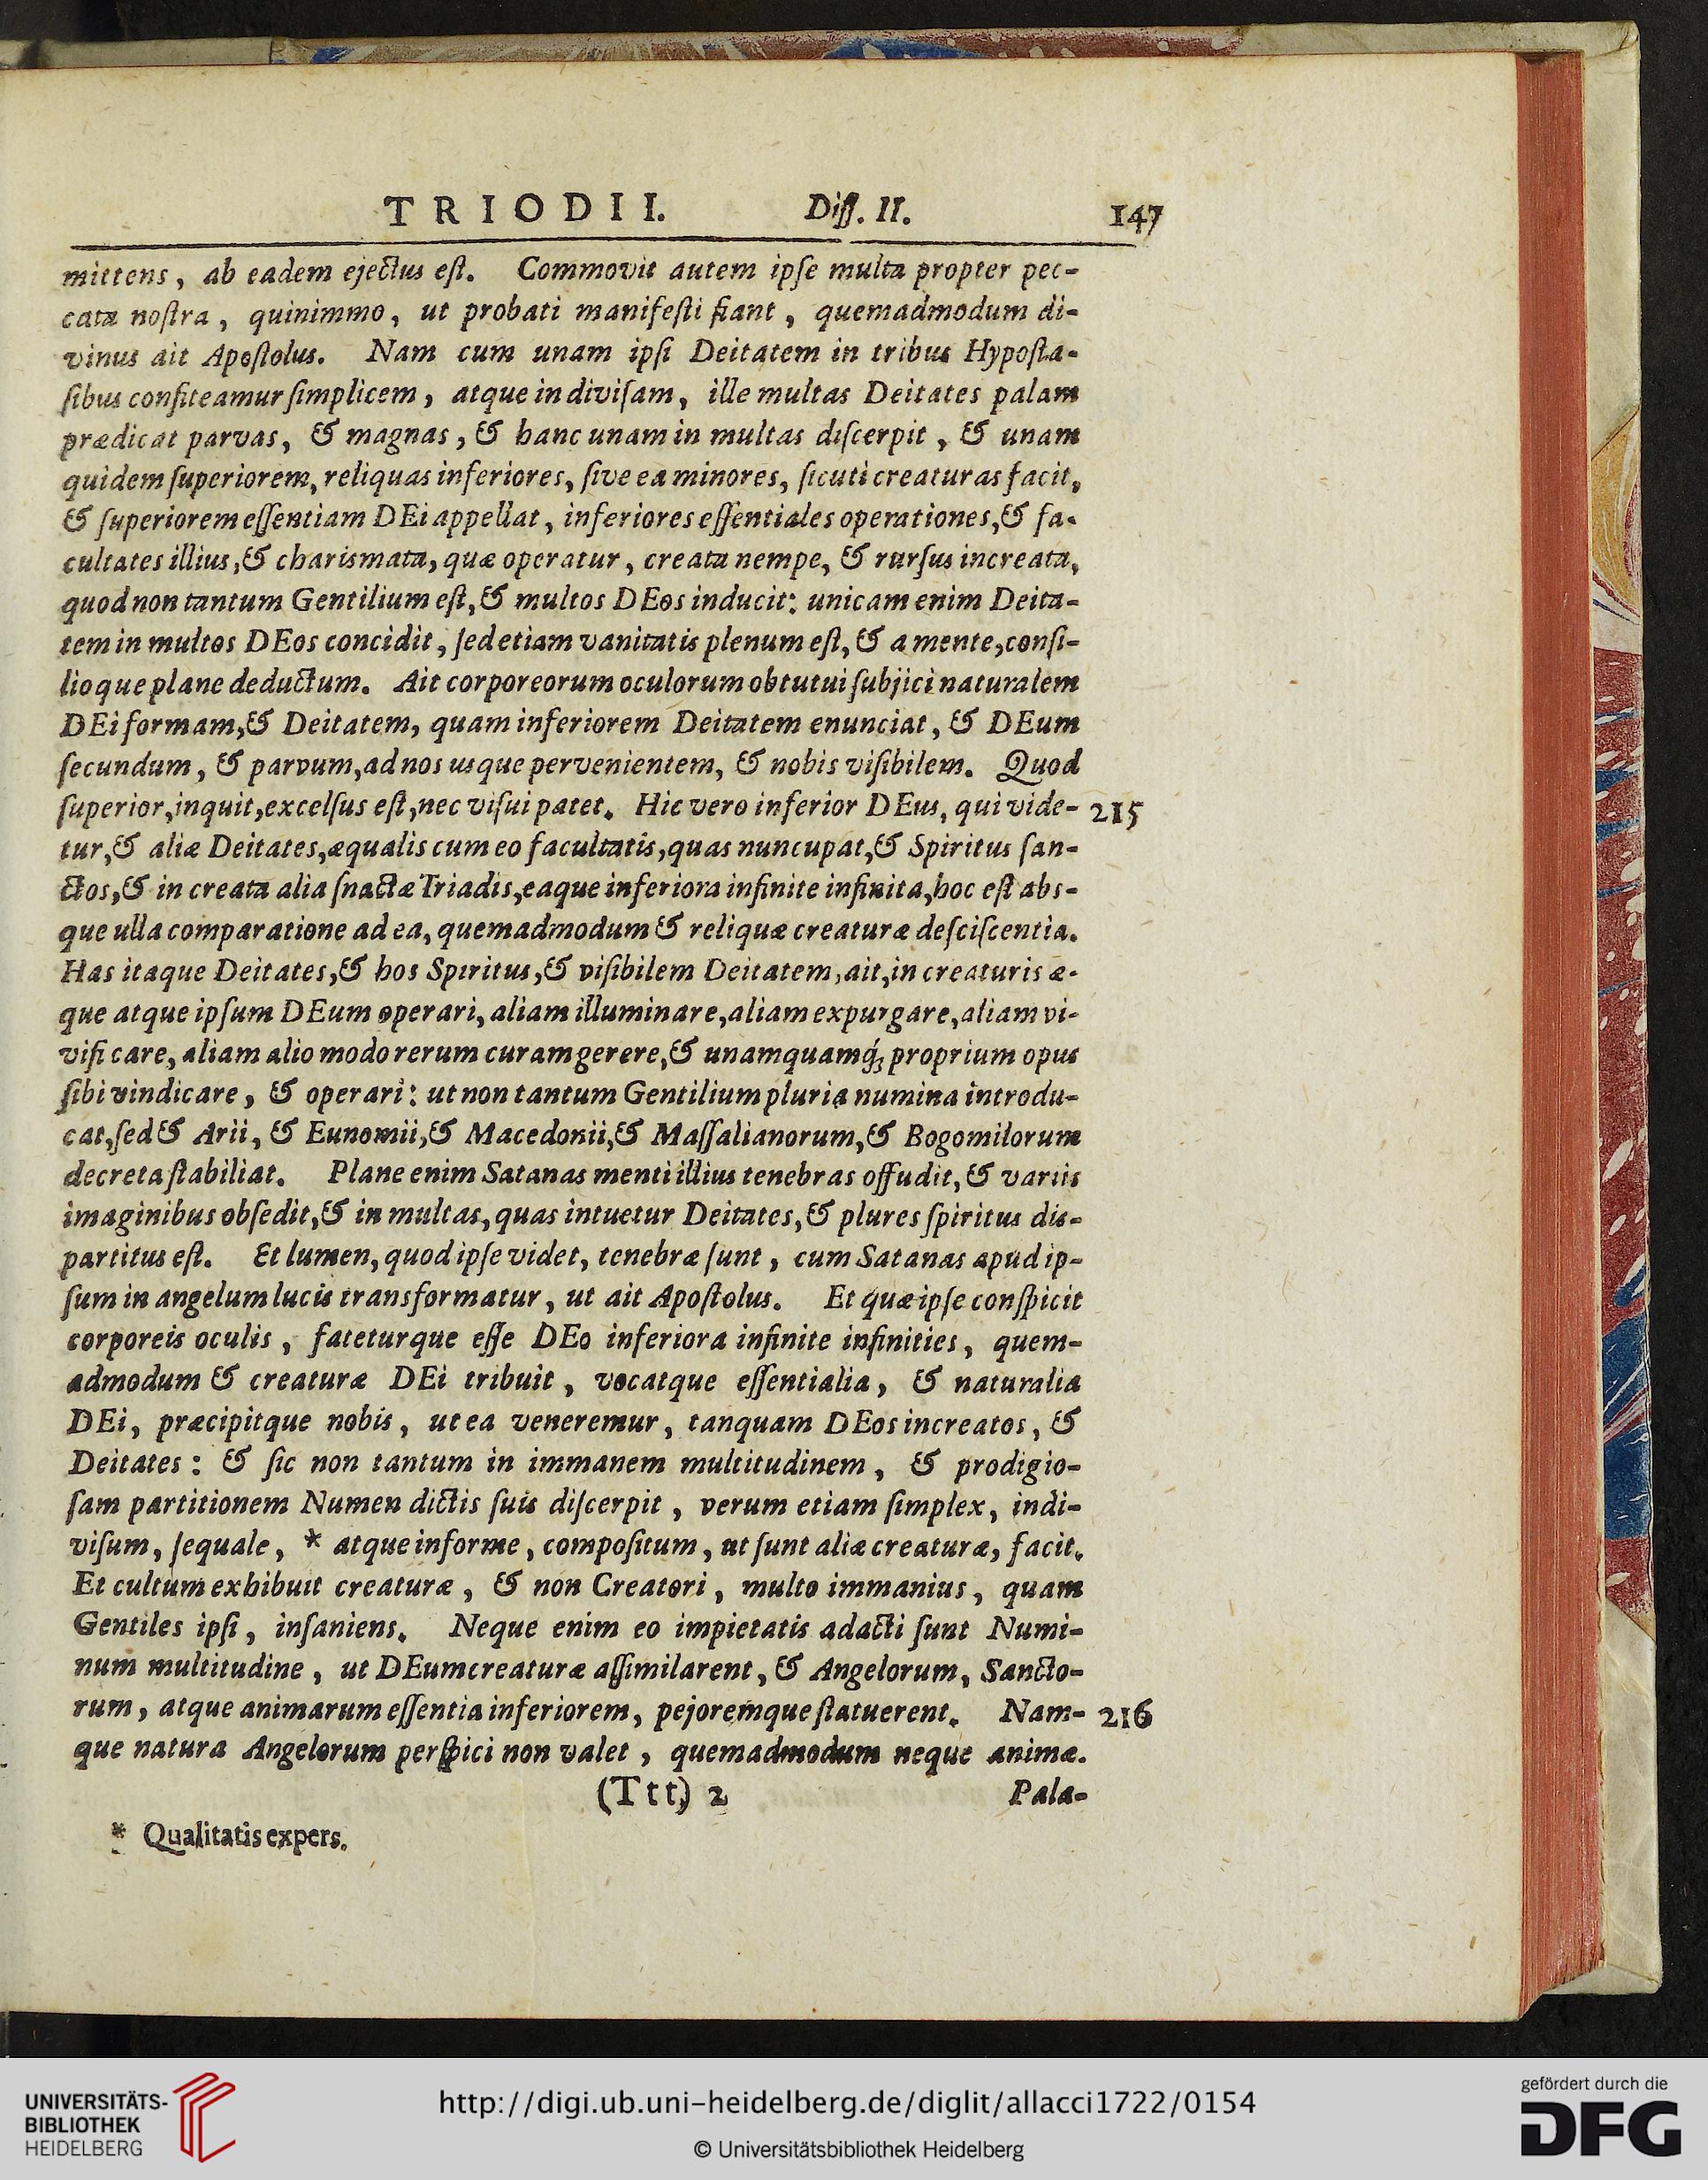 TRIODII. Diſſ. II. 147
mittens, ab eadem ejectus eſt. Commovit autem ipſe multa propter pec-
cata noſtra, quinimmo, ut probati manifeſti fiant, quemadmodum di-
vinus ait Apoſtolus. Nam cum unam ipſi Deitatem in tribus Hypoſta-
ſibus confiteamur ſimplicem, atque indiviſam, ille multas Deitates palam
prædicat parvas, & magnas, & hanc unam in multas diſcerpit, & unam
quidem ſuperiorem, reliquas inferiores, ſive ea minores, ſicuti creaturas facit,
& ſuperiorem eſſentiam DEi appellat, inferiores eſſentiales operationes, & fa-
cultates illius, & charismata, quæ operatur, creata nempe, & rurſus increata,
quod non tantum Gentilium eſt, & multos DEos inducit: unicam enim Deita-
tem in multos DEos concidit, ſed etiam vanitatis plenum eſt, & a mente, conſi-
lioque plane deductum. Ait corporeorum oculorum obtutui ſubjici naturalem
DEi formam, & Deitatem, quam inferiorem Deitatem enunciat, & DEum
ſecundum, & parvum, ad nos usque pervenientem, & nobis viſibilem. Quod
ſuperior, inquit, excelſus eſt, nec viſui patet. Hic vero inferior DEus, qui vide- 215
tur, & aliæ Deitates, æqualis cum eo facultatis, quas nuncupat, & Spiritus ſan-
ctos, & in creata alia ſnactæ Triadis, eaque inferiora infinite infinita, hoc eſt abs-
que ulla comparatione ad ea, quemadmodum & reliquæ creaturæ deſciſcentia.
Has itaque Deitates, & hos Spiritus, & viſibilem Deitatem, ait, in creaturis æ-
que atque ipſum DEum operari, aliam illuminare, aliam expurgare, aliam vi-
vificare, aliam alio modo rerum curam gerere, & unamquamq; proprium opus
ſibi vindicare, & operari: ut non tantum Gentilium pluria numina introdu-
cat, ſed & Arii, & Eunomii, & Macedonii, & Maſſalianorum, & Bogomilorum
decreta ſtabiliat. Plane enim Satanas menti illius tenebras offudit, & variis
imaginibus obſedit, & in multas, quas intuetur Deitates, & plures ſpiritus dis-
partitus eſt. Et lumen, quod ipſe videt, tenebræ ſunt, cum Satanas apud ip-
ſum in angelum lucis transformatur, ut ait Apoſtolus. Et quæ ipſe conſpicit
corporeis oculis, fateturque eſſe DEo inferiora infinite infinities, quem-
admodum & creaturæ DEi tribuit, vocatque eſſentialia, & naturalia
DEi, præcipitque nobis, ut ea veneremur, tanquam DEos increatos, &
Deitates: & ſic non tantum in immanem multitudinem, & prodigio-
ſam partitionem Numen dictis ſuis diſcerpit, verum etiam ſimplex, indi-
viſum, ſequale, * atque informe, compoſitum, ut ſunt aliæ creaturæ, facit.
Et cultum exhibuit creaturæ, & non Creatori, multo immanius, quam
Gentiles ipſi, inſaniens. Neque enim eo impietatis adacti ſunt Numi-
num multitudine, ut DEum creaturæ aſſimilarent, & Angelorum, Sancto-
rum, atque animarum eſſentia inferiorem, pejoremque ſtatuerent. Nam- 216
que natura Angelorum perſpici non valet, quemadmodum neque animæ.
(Ttt) 2 Pala-
* Qualitatis expers.
UNIVERSITÄTS-
BIBLIOTHEK
HEIDELBERG
http://digi.ub.uni-heidelberg.de/diglit/allacci1722/0154
© Universitätsbibliothek Heidelberg
gefördert durch die
DFG